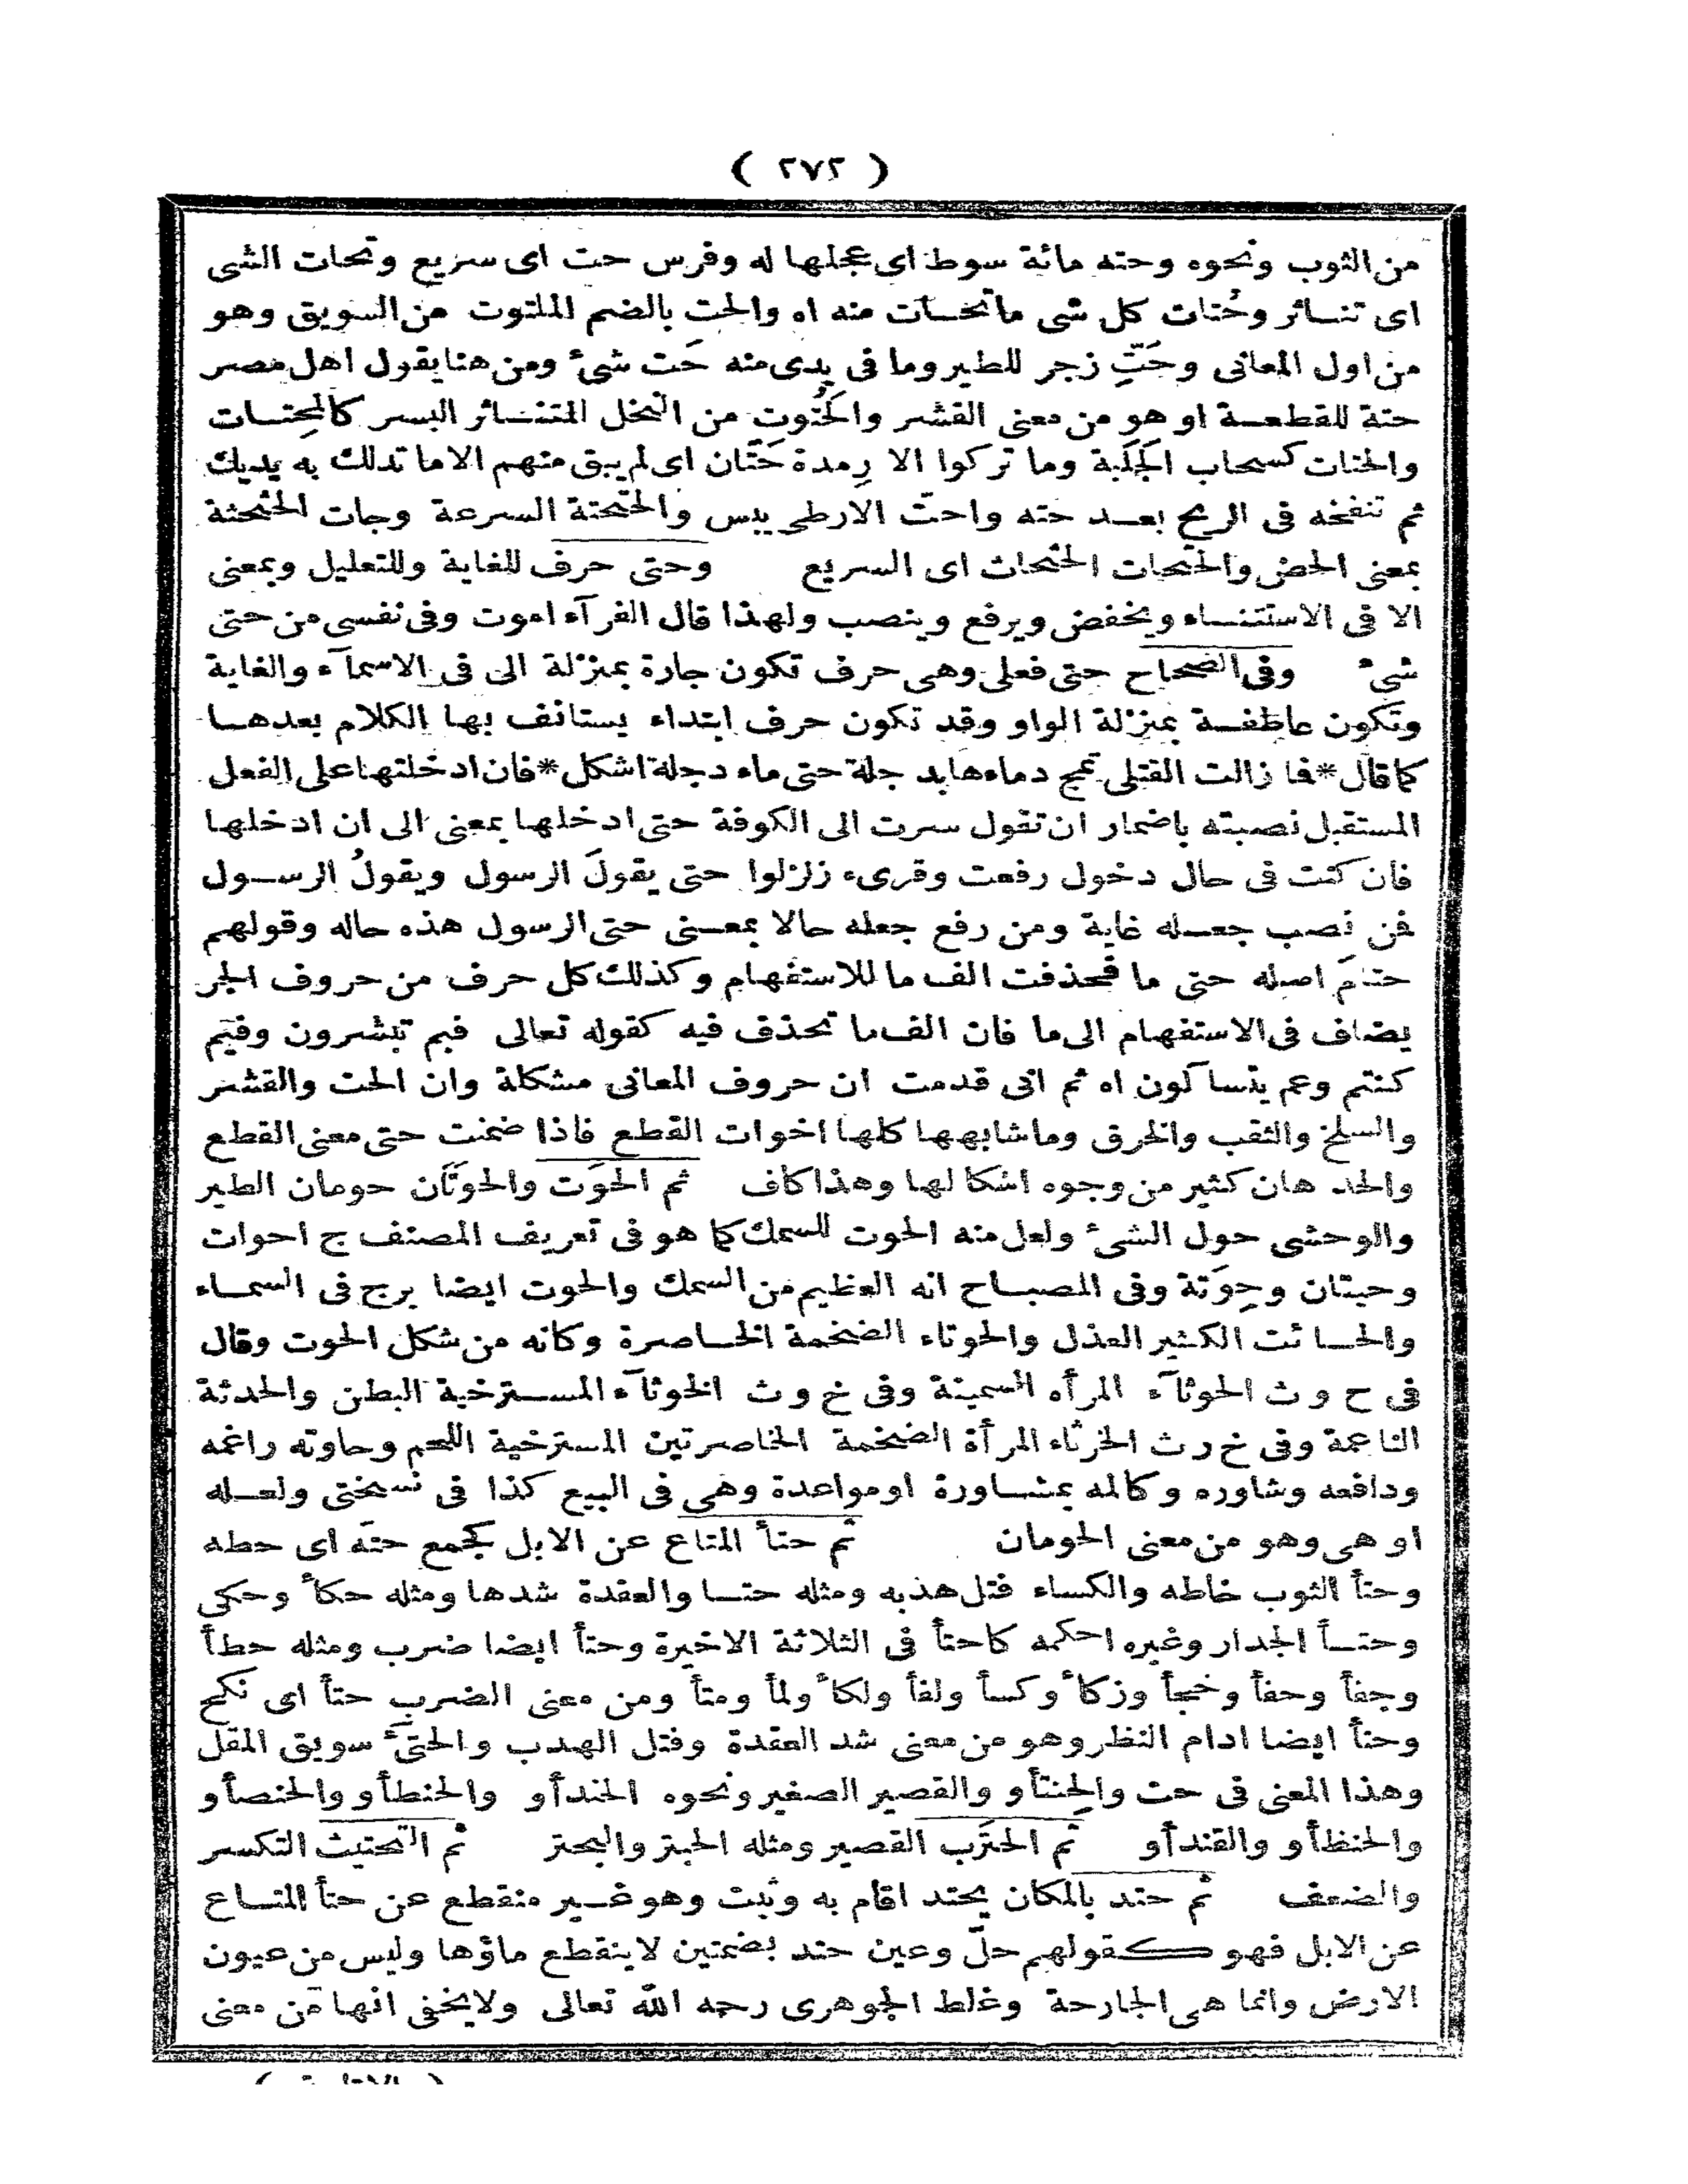 ( ٢٧٢ )
من الثوب ونحوه وحته مائة سوط اى عجلها له وفرس حت اى سريع وتحات الشى
اى تنساثر وحُتات كل شى ماتحسات منه اه والحت بالضم الملتوت من السويق وهو
من اول المعانى وحَتِّ زجر للطير وما فى يدى منه حَت شئ ومن هنا يقول اهل مصر
حتة للقطعة او هو من معنى القشر والحَتُوت من النخل المتنساثر البسر كالمِحتسات
والحتات كسحاب الجَلَبة وما تركوا الا رِمدة حَتّان اى لم يبق منهم الا ما تدلك به يديك
ثم تنفخه فى الريح بعد حته واحتّ الارطى يبس والحتحتة السرعة وجات الحثحثة
بمعنى الحض والحتحات الحثحاث اى السريع وحتى حرف للغاية وللتعليل وبمعنى
الا فى الاستثناء ويخفض ويرفع وينصب ولهذا قال الفرآء اموت وفى نفسى من حتى
شئ وفى الصحاح حتى فعلى وهى حرف تكون جارة بمنزلة الى فى الاسمآء والغاية
وتكون عاطفة بمنزلة الواو وقد تكون حرف ابتداء يستانف بها الكلام بعدها
كما قال * فما زالت القتلى تمج دماءها بد جلة حتى ماء دجلة اشكل * فان ادخلتها على الفعل
المستقبل نصبته باضمار ان تقول سرت الى الكوفة حتى ادخلها بمعنى الى ان ادخلها
فان كنت فى حال دخول رفعت وقرىء زلزلوا حتى يقولَ الرسول ويقولُ الرسول
فمن نصب جعله غاية ومن رفع جعله حالا بمعنى حتى الرسول هذه حاله وقولهم
حتامَ اصله حتى ما فحذفت الف ما للاستفهام وكذلك كل حرف من حروف الجر
يضاف فى الاستفهام الى ما فان الف ما تحذف فيه كقوله تعالى فبم تبشرون وفيم
كنتم وعم يتسا َلون اه ثم انى قدمت ان حروف المعانى مشكلة وان الحت والقشر
والسلخ والثقب والخرق وما شابهها كلها اخوات القطع فاذا ضمنت حتى معنى القطع
والحد هان كثير من وجوه اشكا لها وهذا كاف ثم الحَوت والحوَتَان حومان الطير
والوحشى حول الشئ ولعل منه الحوت للسمك كما هو فى تعريف المصنف ج احوات
وحيتان وحِوَتة وفى المصباح انه العظيم من السمك والحوت ايضا برج فى السماء
والحسا ئت الكثير العذل والحوتاء الضخمة الخاصرة وكانه من شكل الحوت وقال
فى ح و ث الحوثآء المرأه السمينة وفى خ و ث الخوثآء المسترخية البطن والحدثة
الناعمة وفى خ ر ث الخرثاء المرأة الضخمة الخاصرتين المسترخية اللحم وحاوته راغمه
ودافعه وشاوره وكالمه بمشاورة او مواعدة وهى فى البيع كذا فى نسختى ولعله
او هى وهو من معنى الحومان ثم حتأ المتاع عن الابل كجمع حته اى حطه
وحتأ الثوب خاطه والكساء فتل هذبه ومثله حتسا والعقدة شدها ومثله حكأ وحكى
وحتأ الجدار وغيره احكمه كاحتأ فى الثلاثة الاخيرة وحتأ ايضا ضرب ومثله حطأ
وجفأ وحفأ وخجأ وزكأ وكسأ ولفأ ولكأ ولمأ ومتأ ومن معنى الضرب حتأ اى نكح
وحتأ ايضا ادام النظر وهو من معنى شد العقدة وفتل الهدب والحتىّ سويق المقل
وهذا المعنى فى حت والحِنتأو والقصير الصغير ونحوه الحندأو والحنطأو والحنصأو
والحنظأو والقندأو ثم الحتَرب القصير ومثله الحبتر والبحتر ثم التحتيث التكسر
والضعف ثم حتد بالمكان يحتد اقام به وثبت وهو غير منقطع عن حتأ المتاع
عن الابل فهو كقولهم حلّ وعين حتد بضمتين لا ينقطع ماؤها وليس من عيون
الارض وانما هى الجارحة وغلط الجوهرى رحمه الله تعالى ولا يخفى انها من معنى